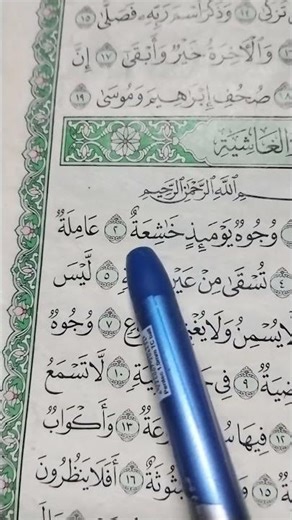 تَزَكَّىٰ ١٤ وَذَكَرَ ٱسْمَ رَبِّهِۦ فَصَلَّىٰ ١٥
وَٱلْءَاخِرَةُ خَيْرٌ وَأَبْقَىٰٓ ١٧ إِنَّ
١٨ صُحُفِ إِبْرَٰهِيمَ وَمُوسَىٰ ١٩
ٱلْغَاشِيَة
ٱللَّهِ ٱلرَّحْمَٰنِ ٱلرَّحِيمِ
وُجُوهٌ يَوْمَئِذٍ خَٰشِعَةٌ ٢ عَامِلَةٌ
٤ تُسْقَىٰ مِنْ عَيْنٍ ٥ لَّيْسَ
لَّا يُسْمِنُ وَلَا يُغْنِي ٧ وُجُوهٌ
٩ فِي ١٠ لَّا تَسْمَعُ
١٢ فِيهَا ١٣ وَأَكْوَابٌ
١٥ ١٦ أَفَلَا يَنظُرُونَ